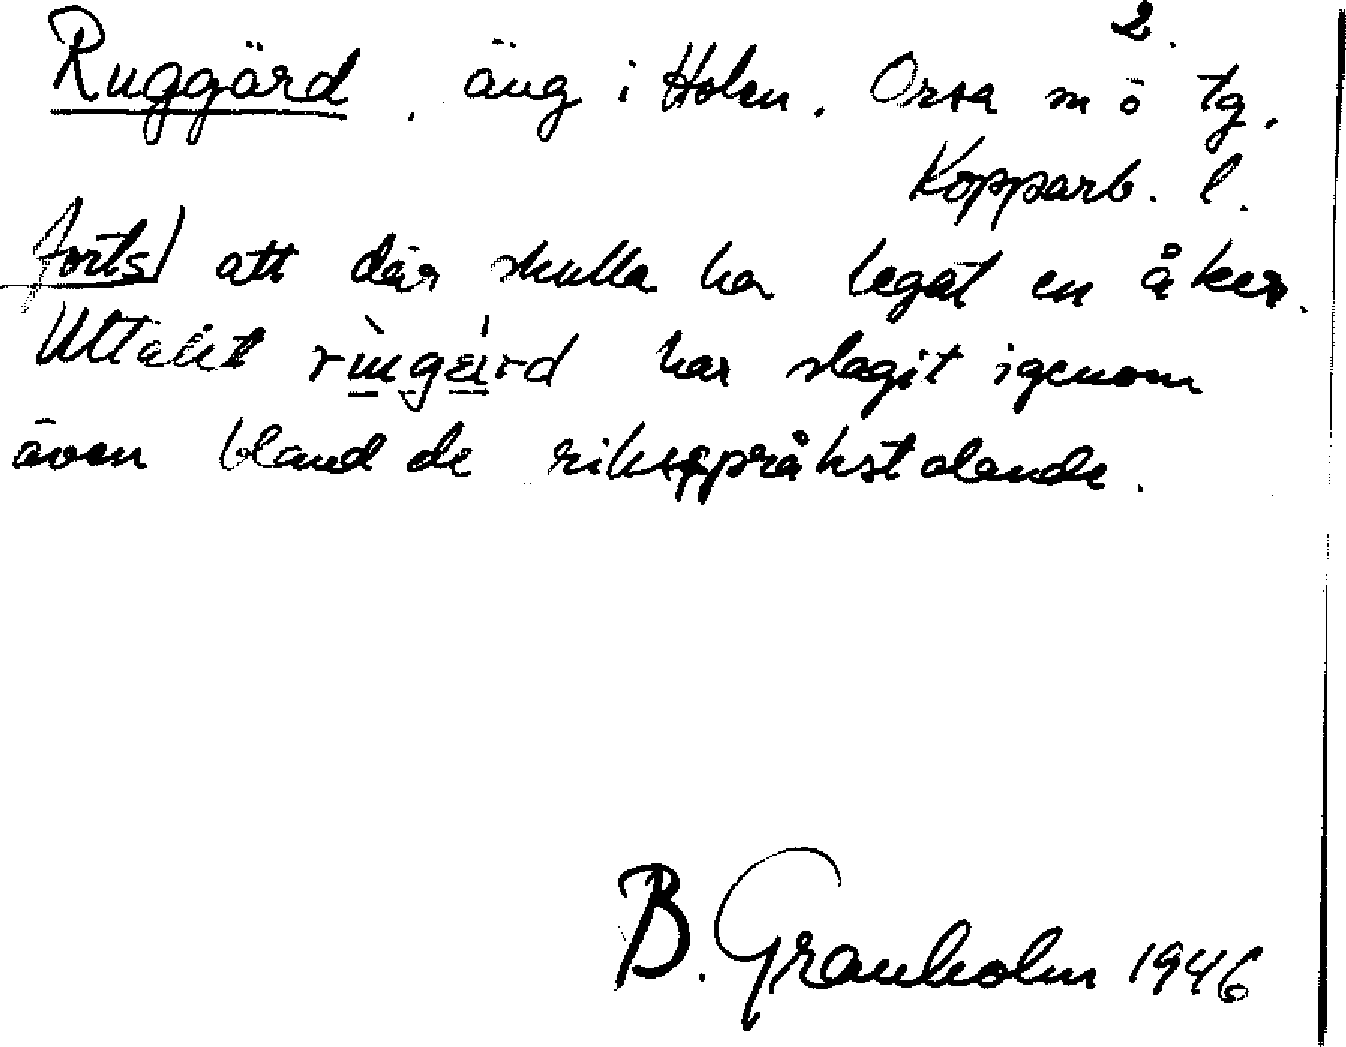 2.
Ruggärd, äng i Holen. Orsa m ö tg.
Kopparb. l.
forts) att där skulla ha legat en åker.
Uttalet har slagit igenom
även bland de riksspråkstalande.
B. Granholm 1946